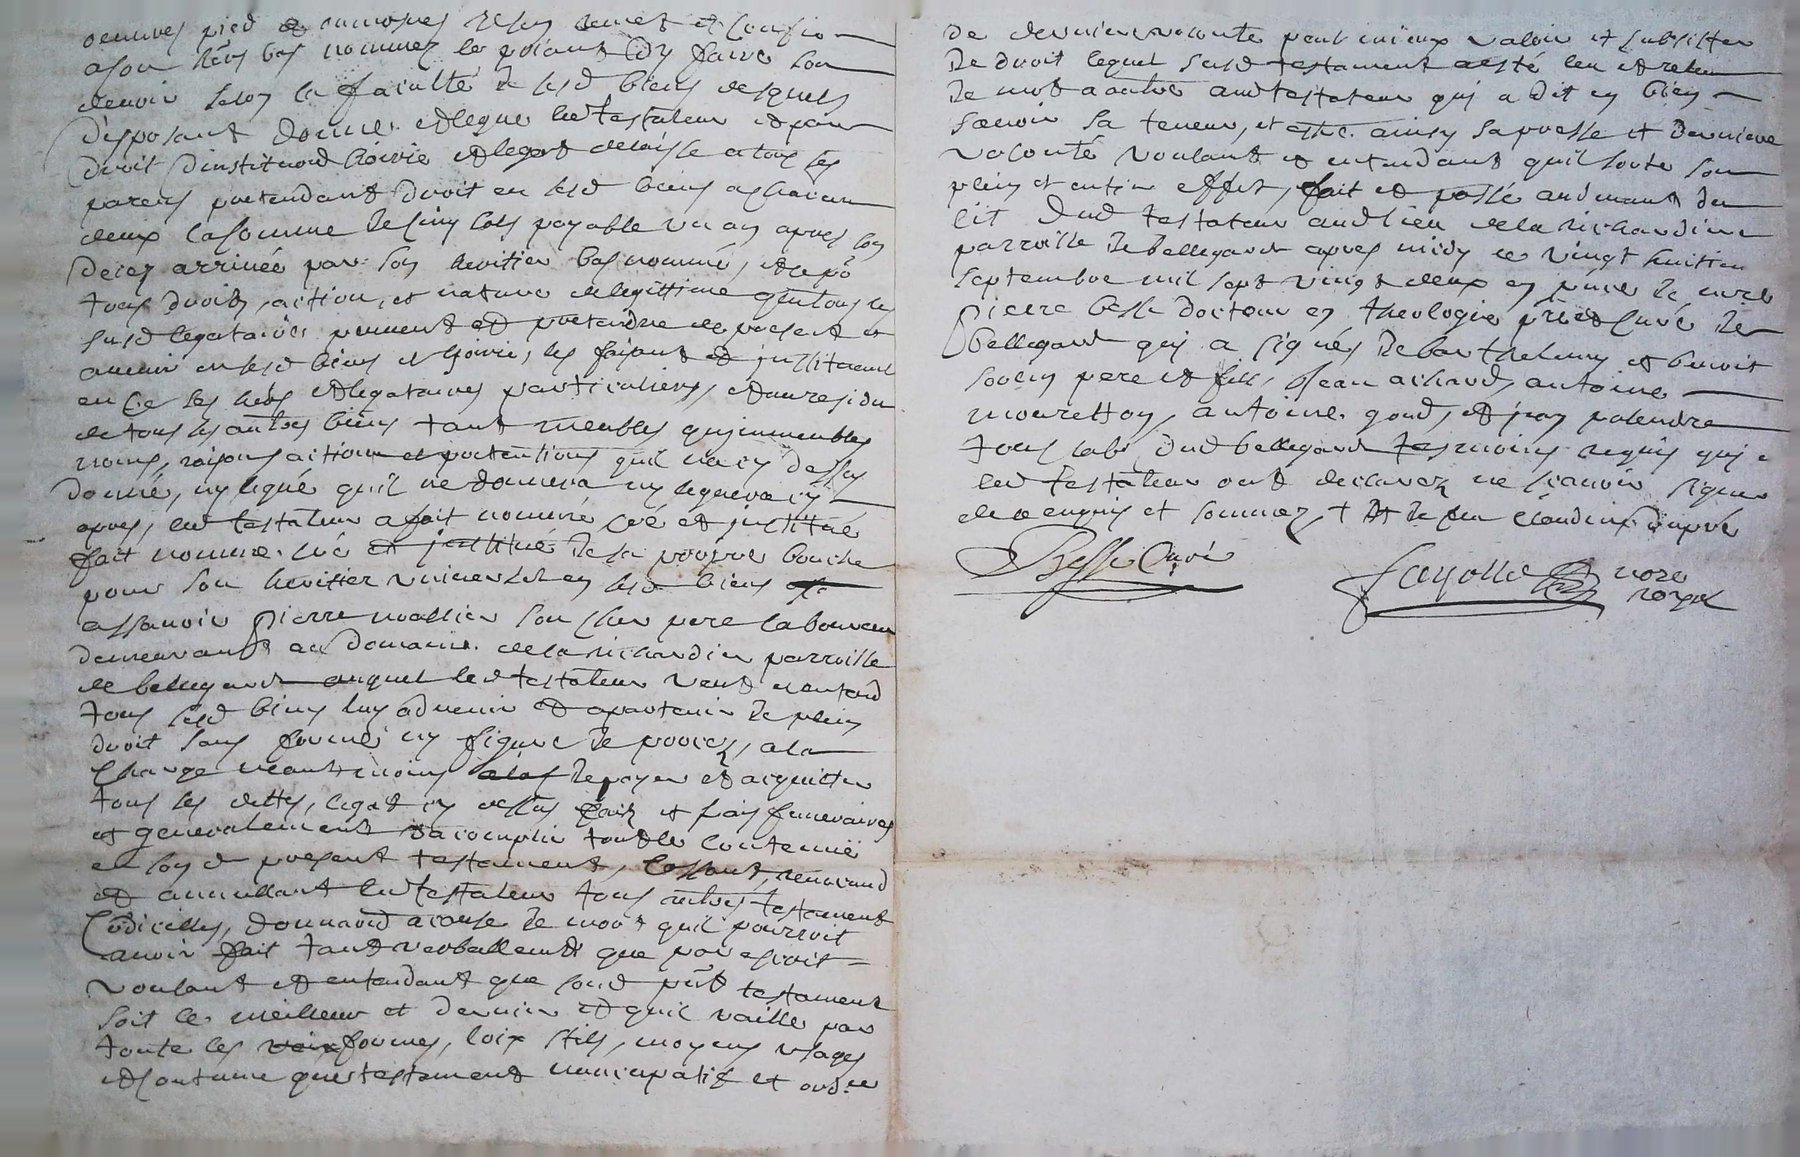 oeuvres pies et aumosnes sesd remet et confie
a son hers bas nommez le priant dy faire son
devoir selon la faculté de sesd biens desquels
disposant donne et legue led testateur et par
droit dinstitution hoirie et legat delaisse a tous ses
parens pretendant droit en sesd biens a chacun
deux la somme de cinq sols payable un an apres son
decez arrivée par son heritier bas nommé, et ce po
tous droitz, action, et nature de legittime que tous ses
susd legataires peuvent et pretendre de present et
avenir en sesd biens et hoirie, les faisant et instituant
en ce ses hers et legataires particuliers, et au residu
de tous ses autres biens tant meubles qui immeubles
noms, raisons actions et pretentions quil na cy dessus
donné, ny legué quil ne donnera ny leguera cy
apres, led testateur a fait nommé creé et institué
fait nomme creé et institué de sa propre bouche
pour son heritier universel en sesd biens
assavoir Pierre noallier son cher pere laboureur
demeurant au domaine de la richardier parroisse
de bellegarde auquel led testateur veut et entend
tous sesd biens luy advenir et apartenir de plein
droit sans forme ny figure de procez, a la
charge neantmoins de payer et acquitter
tous ses dettes, legat cy dessus faitz et frais funeraires
et generalement acomplir tout le contenu
en sond present testament, cassant, revocand
et annullant led testateur tous autres testament
Codicilles, donnaond a cause de mort quil pourroit
avoir fait tant verballement que par escrit
voulant et entendant que sond pnt testament
soit le meilleur et dernier et quil vaille par
toute les formes, loix stils, moyens usages
et coutume que testament nuncupatif et ord.re
de derniere volonte peut mieux valoir et subsister
de droit lequel susd testament a esté leu et releu
de mot a autre aud testateur qui a dit cy bien
scavoir sa teneur, et estre ainsy sa presse et derniere
volonté voulant et entendant quil sorte son
plein et entier effet, fait et passé au devant du
lit dud testateur aud lieu de la richardiere
parroisse de bellegarde apres midy ce vingt huitieme
septembre mil sept vingt deux en pnce de mre
Pierre besse docteur en theologie pretre Curé de
bellegarde qui a signés de barthelemy et benoit
pere et fils, Jean achard, antoine
mouretton, antoine goud, et jean palendre
tous lab. dud bellegarde tesmoins requis qui et
led testateur ont declarez ne scavoir signer
de ce enquis et sommez,
Besse Curé
Fayolle nore
royal